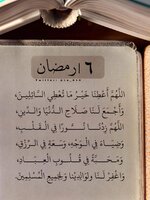 ٦ رمضان
اللَّهُمَّ أَعْطِنَا خَيْرَ مَا تُعْطِي السَّائِلِينَ،
وَاجْمَعْ لَنَا صَلَاحَ الدُّنْيَا وَالدِّينِ،
اللَّهُمَّ زِدْنَا نُورًا فِي الْقَلْبِ،
وَضِيَاءً فِي الْوَجْهِ، وَسَعَةً فِي الرِّزْقِ،
وَمَحَبَّةً فِي قُلُوبِ الْعِبَادِ،
وَاغْفِرْ لَنَا وَلِوَالِدِينَا وَلِجَمِيعِ الْمُسْلِمِينَ.